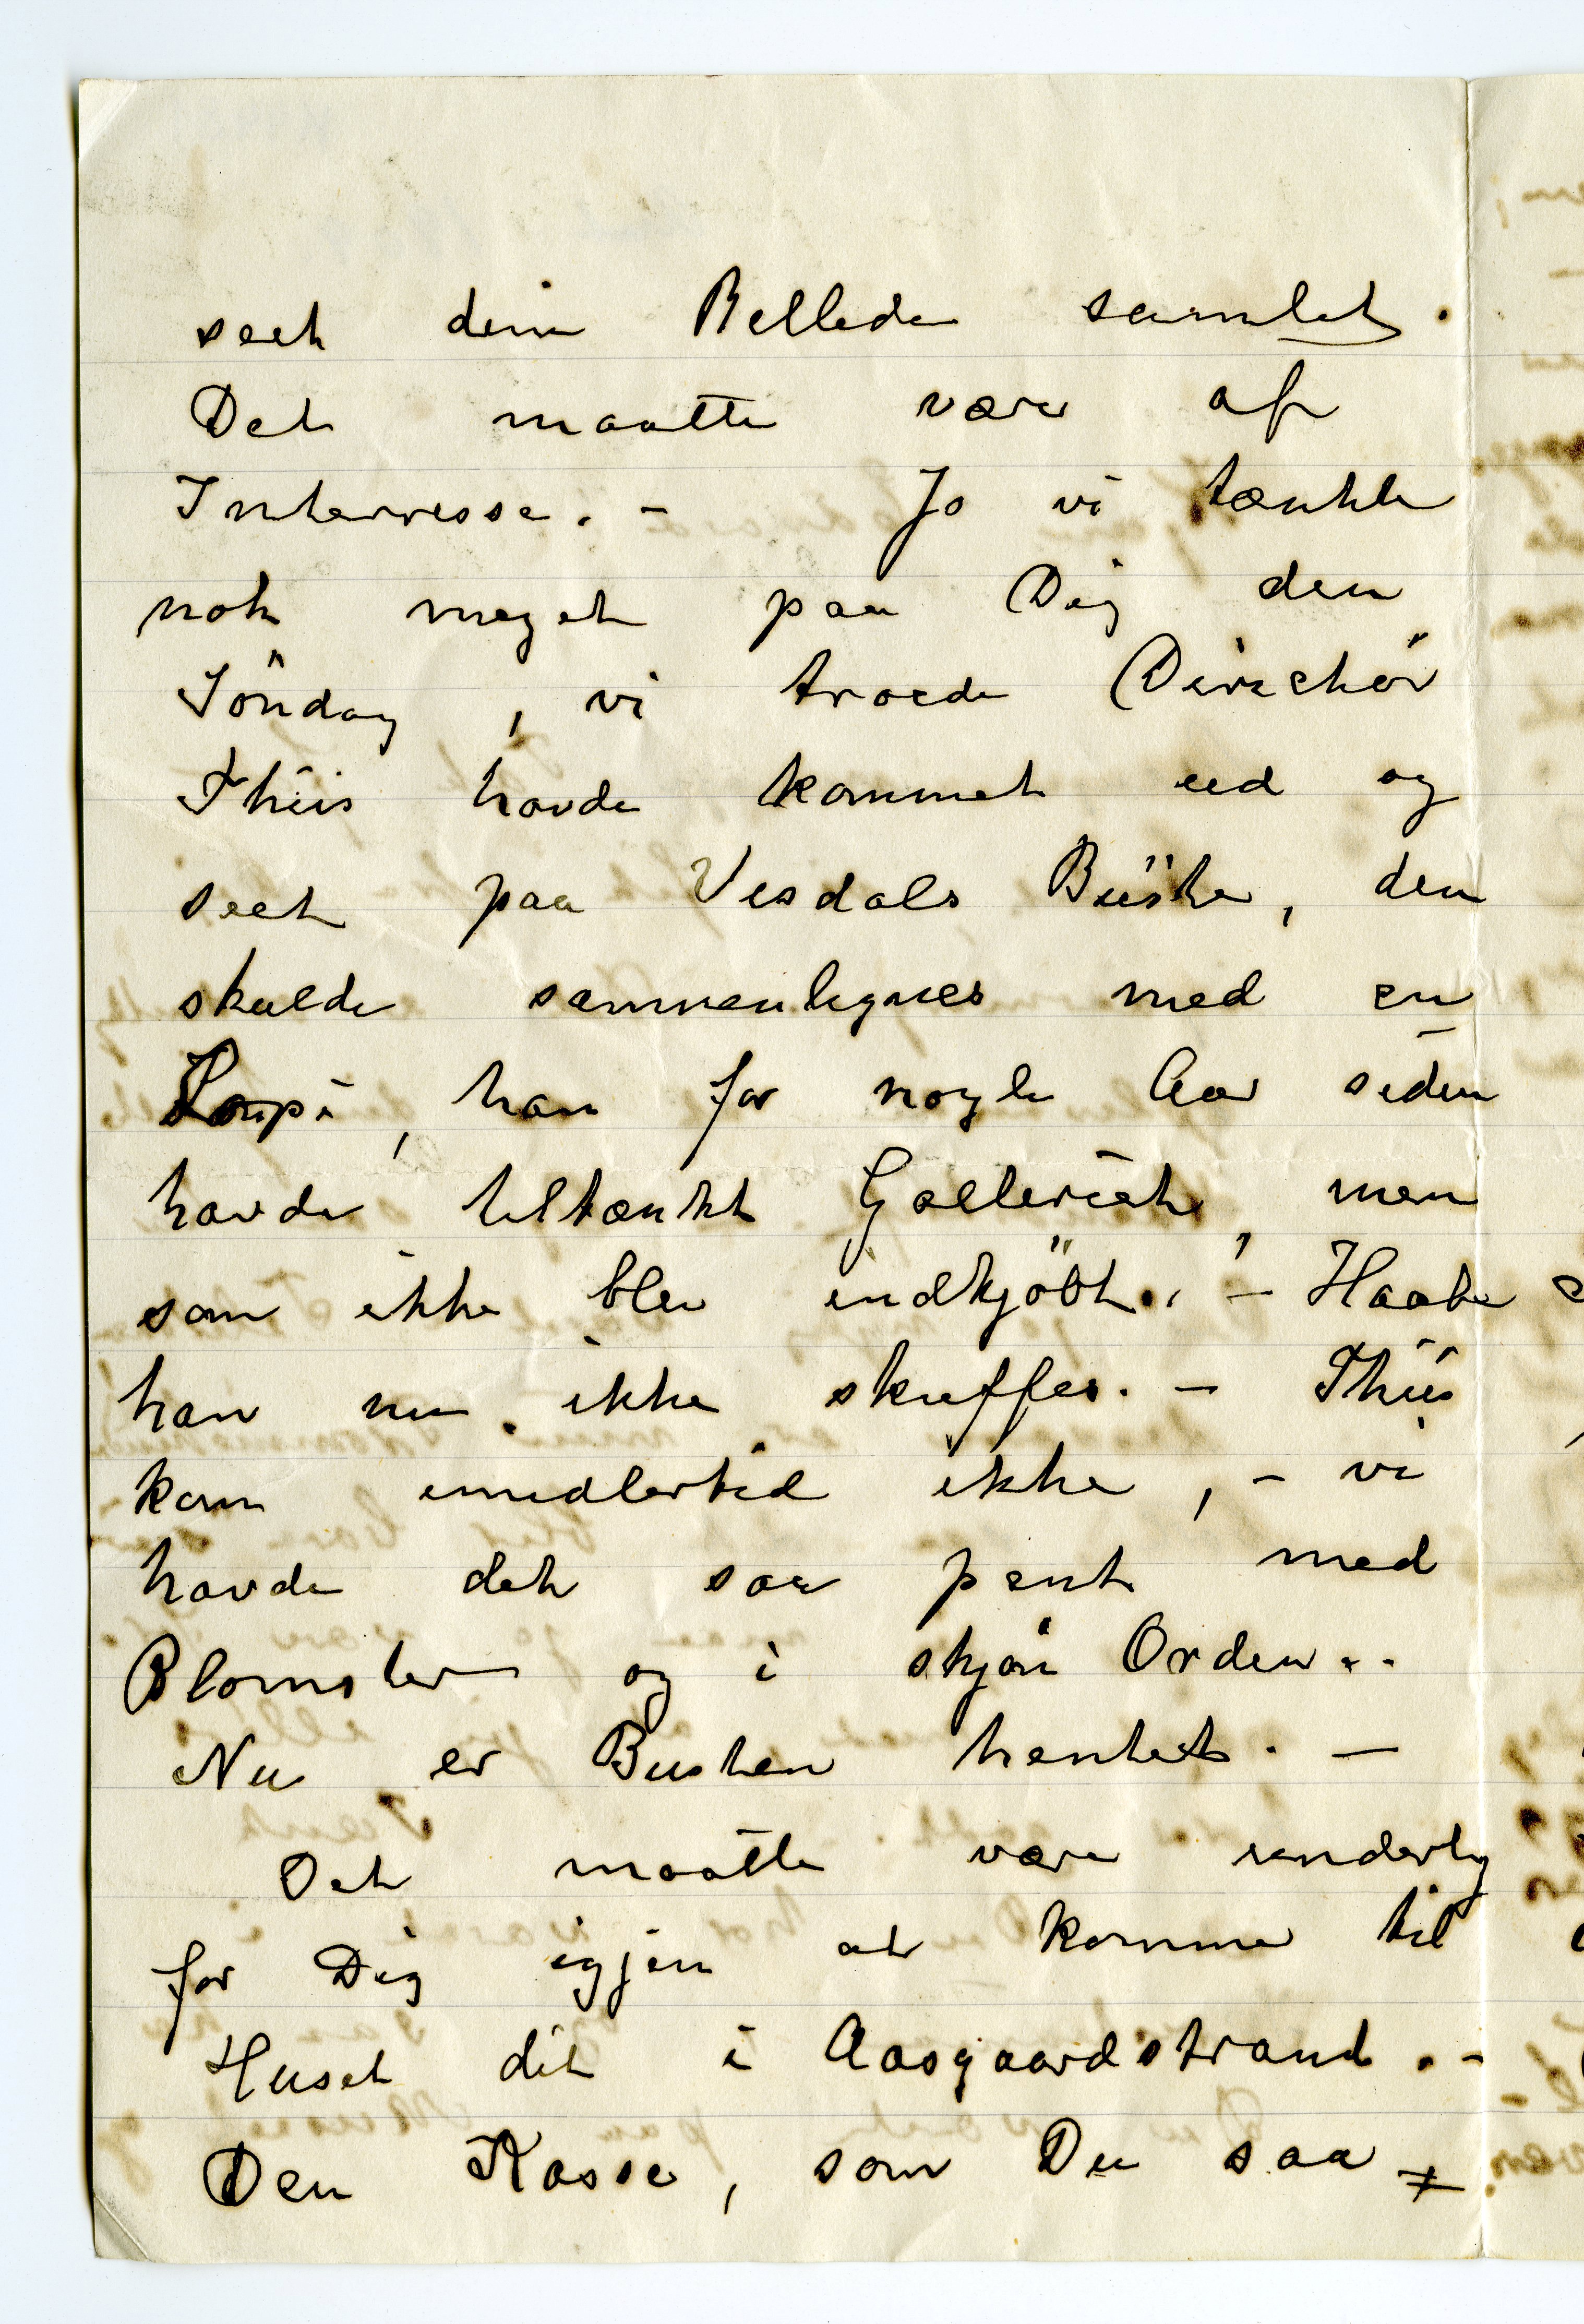 seet dine Billeder samlet.
Det maatte være af
Interresse. – Jo vi tænkte
nok meget paa Dig den
Söndag, vi troede Direchör
Thiis havde kommet ud og
seet paa Visdals Büste, den
skulde sammenlignes med en
han for nogle Aar siden
havde tiltænkt Galleriet, men
som ikke blev indkjöbt. – Haabe
han nu ikke skuffes. – Thiis
kom imidlertid ikke, – vi
havde det saa pent med
Blomster og i skjön Orden..
Nu er Busten hentet. –
Det maatte være underlig
for Dig igjen at komme til
Huset dit i Aasgaardstrand. –
Den Kasse, som Du saa